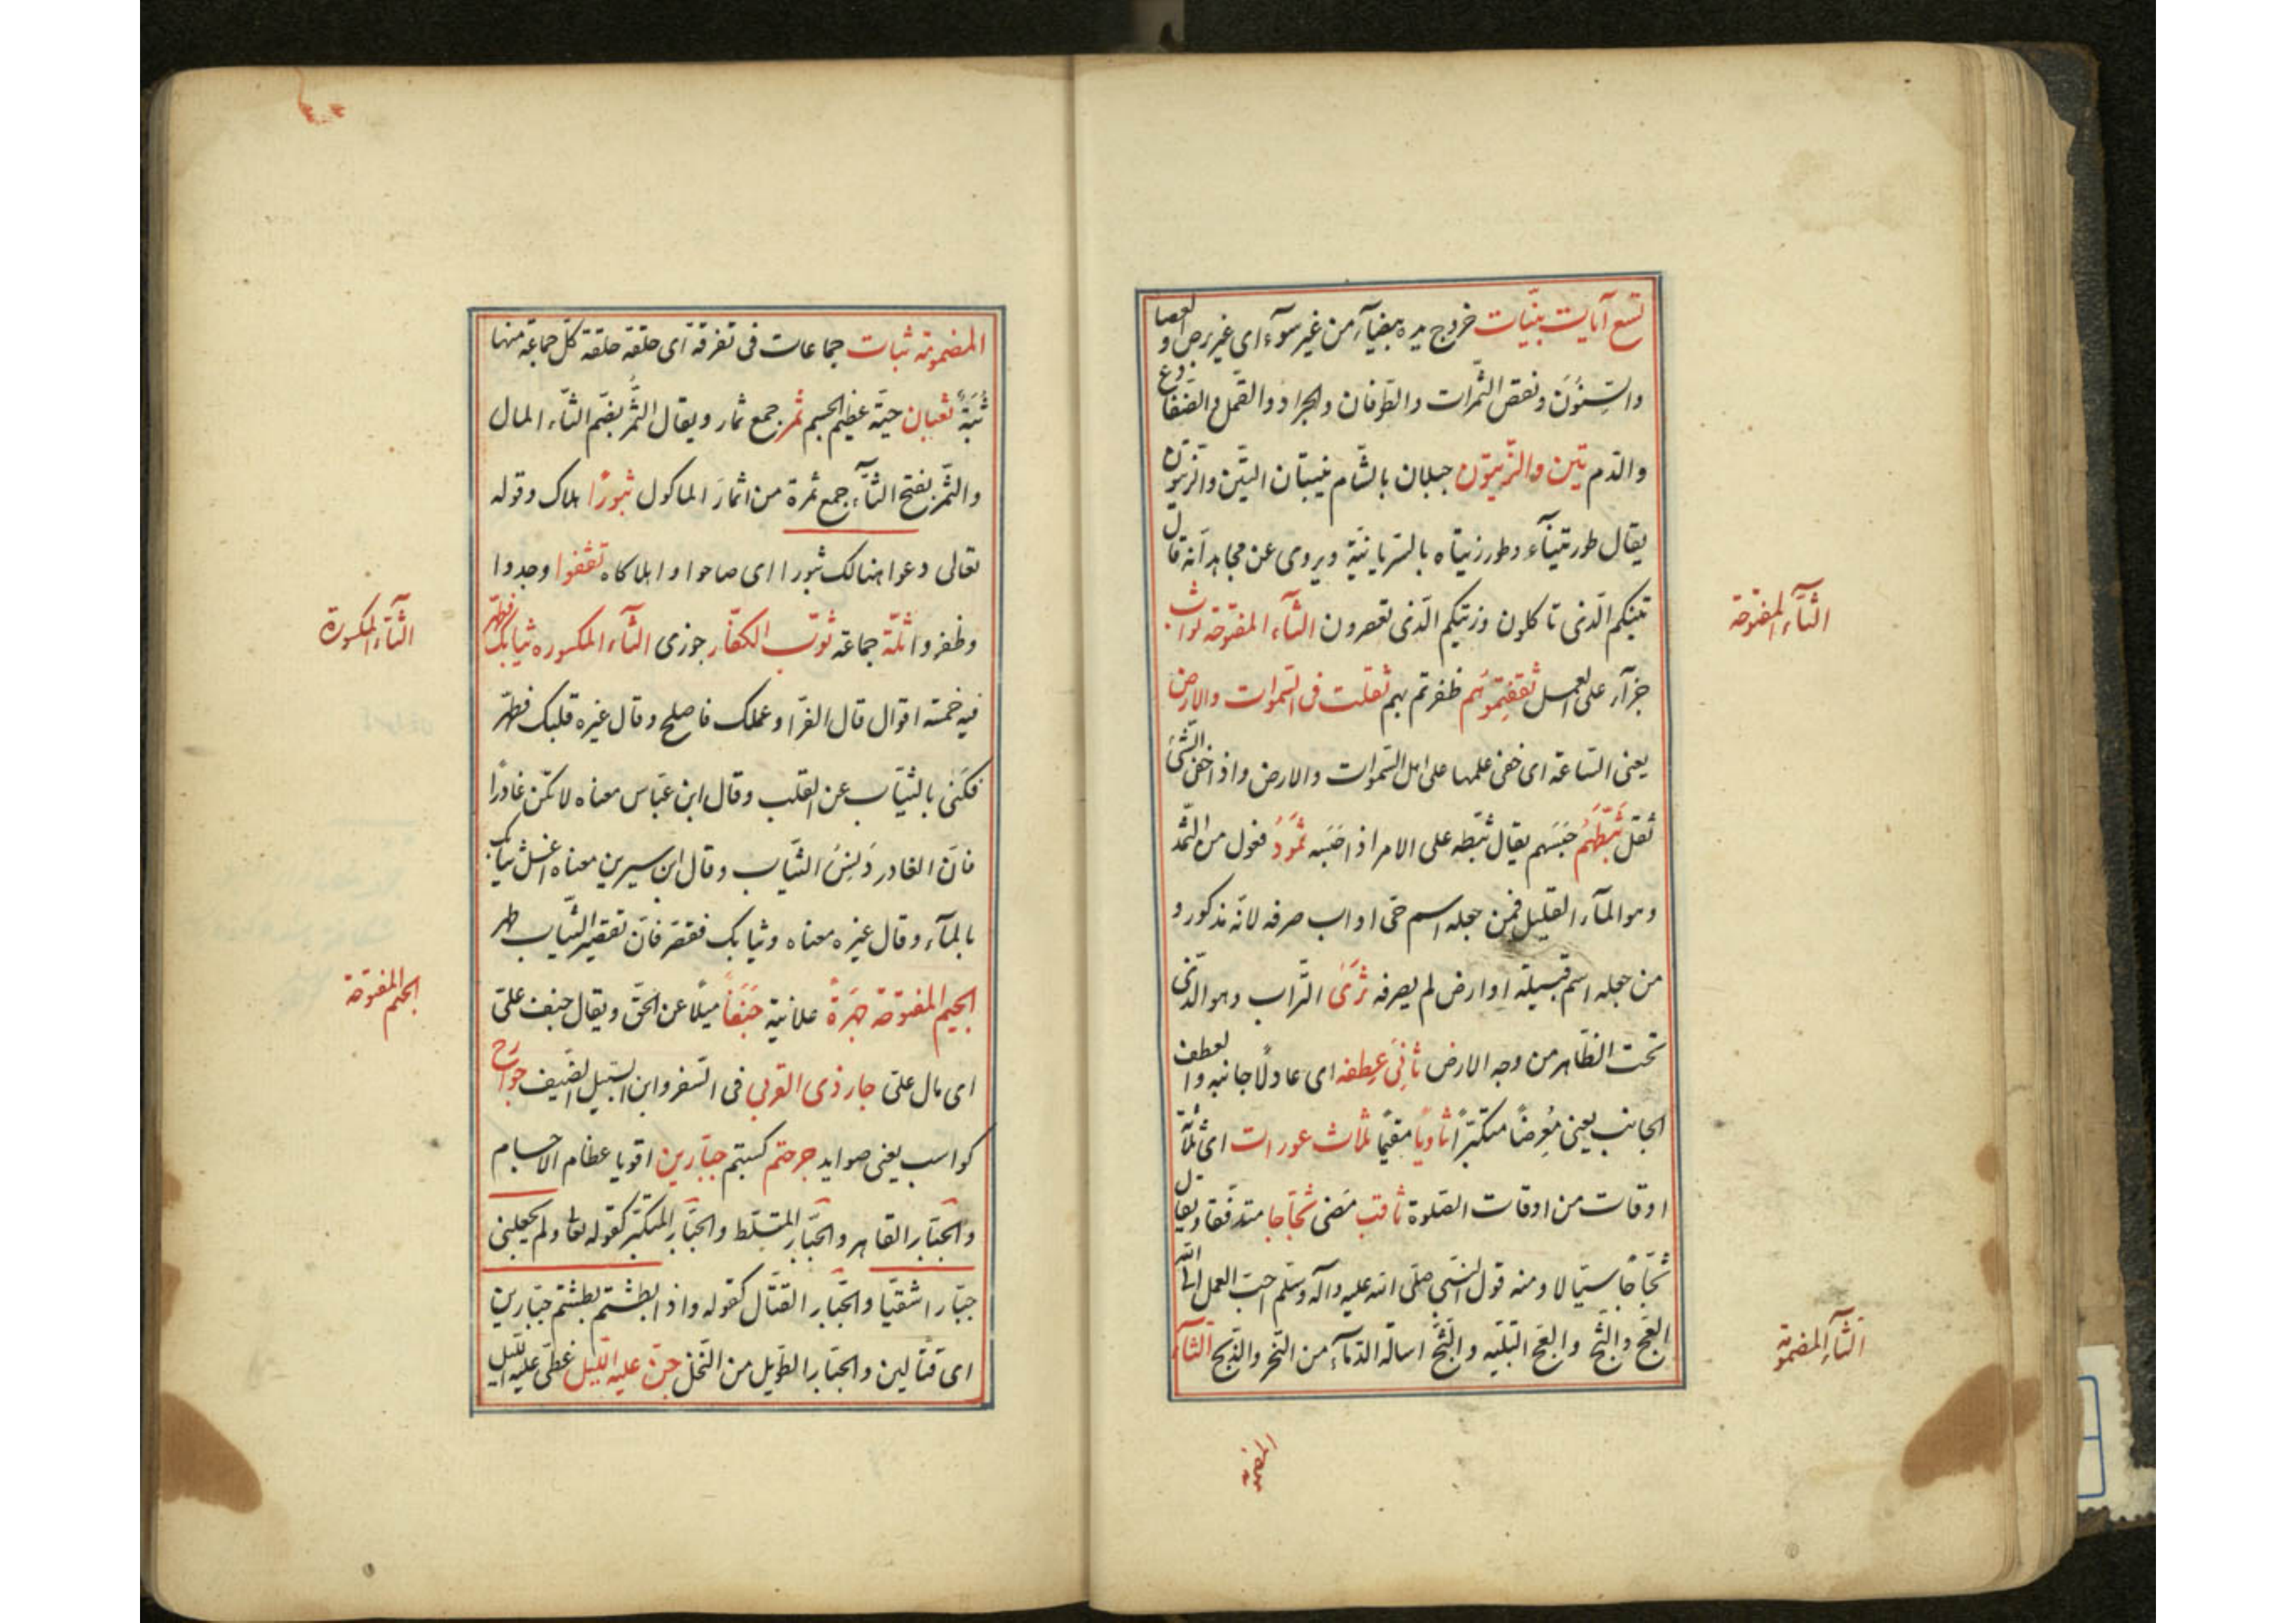 تسع آيات بينّات خروج يده بيضآء من غير سوٓء اى غير برص والعصا
والسِّنُوْنَ ونقص الثّمرات والطّوفان والجراد والقمّل والضّفادع
والدّم تين والزّيتون جبلان بالشّام ينبتان التّين والزّيتون
يقال طور تيناٰء وطور زيتاه بالسّريانيّة ويروى عن مجاهد انّه قال
تينكم الّذى تاكلون وزيتكم الّذى تعصرون الثآء المفتوحة ثواب
جزآء على العمل ثقفتموُهُم ظفرتم بهم ثقلت فى السّموات والارض
يعنى السّاعة اى خفى علمها على اهل السّموات والارض واذا خفى الشّئ
ثقل ثَبَّطَهُم حَبَسَهم يقال ثبّطه على الامر اذا حَبَسَه ثَمُوْدُ فعول من الثّمد
وهو المآء القليل فمن جعله اسم حىّ او اب صرفه لانّه مذكور و
من جعله اسم قبيلة او ارض لم يصرفه ثَرَىٰ التّراب وهو الّذى
تحت الظّاهر من وجه الارض ثانِىَ عِطفه اى عادلًا جانبه والعطف
الجانب يعنى مُعرِضًا متكبّرًا ثاويًا مقيمًا ثلاث عورات اى ثلثة
اوقات من اوقات الصّلوة ثاقب مضئ ثجّاجا متدفّقا ويقال
ثجّاجًا سيّالا ومنه قول النّبى صلّى الله عليه وآله وسلّم احبّ العمل الى الله
العجّ والثّجّ والعجّ التّلبيه والثّجّ اسالة الدّمآء من النّحر والذّبح الثآء
الثآء المفتوحة
الثآء المضمومة
المضمومة
المضمومة ثبات جماعات فى تفرقة اى حلقة حلقة كلّ جماعة منها
ثُبَةٌ ثعبان حيّة عظيم الجسم ثمر جمع ثمار ويقال الثُّمُر بضمّ الثّاء المال
والثّمر بفتح الثآء جمع ثمرة من اثمار الماكول ثبورًا هلاك وقوله
تعالى دعوا هنالك ثبورا اى صاحوا واهلاكاه ثقفوا وجدوا
وظفروا ثلّة جماعة ثوّب الكفّار جوزى الثآء المكسوره ثيابك فطهّر
فيه خمسة اقوال قال الفرّا وعملك فاصلح وقال غيره قلبك فطهّر
فكَنىٰ بالثّياب عن القلب وقال ابن عبّاس معناه لا تكن غادرًا
فانّ الغادر دَنِسُ الثّياب وقال ابن سيرين معناه اغسل ثيابك
بالمآء وقال غيره معناه وثيابك فقصّر فانّ تقصير الثّياب طهر
الجيم المفتوحة جَهرَةً علانية جَنَفًا ميلًا عن الحقّ ويقال جنف علىّ
اى مال علىّ جار ذى القربى فى السّفر وابن السّبيل الضّيف جوارح
كواسب يعنى صوايد جرحتم كسبتم جبّارين اقويا عظام الاجسام
والجبّار القاهر والجبّار المتسلّط والجبّار المتكبّر كقوله تعا ولم يجعلنى
جبّارا شقيّا والجبّار القتّال كقوله واذا بطشتم بطشتم جبّارين
اى قتّالين والجبّار الطّويل من النّخل جنّ عليه اللّيل غطّى عليه اللّيل
الثآء المكسورة
الجيم المفتوحة